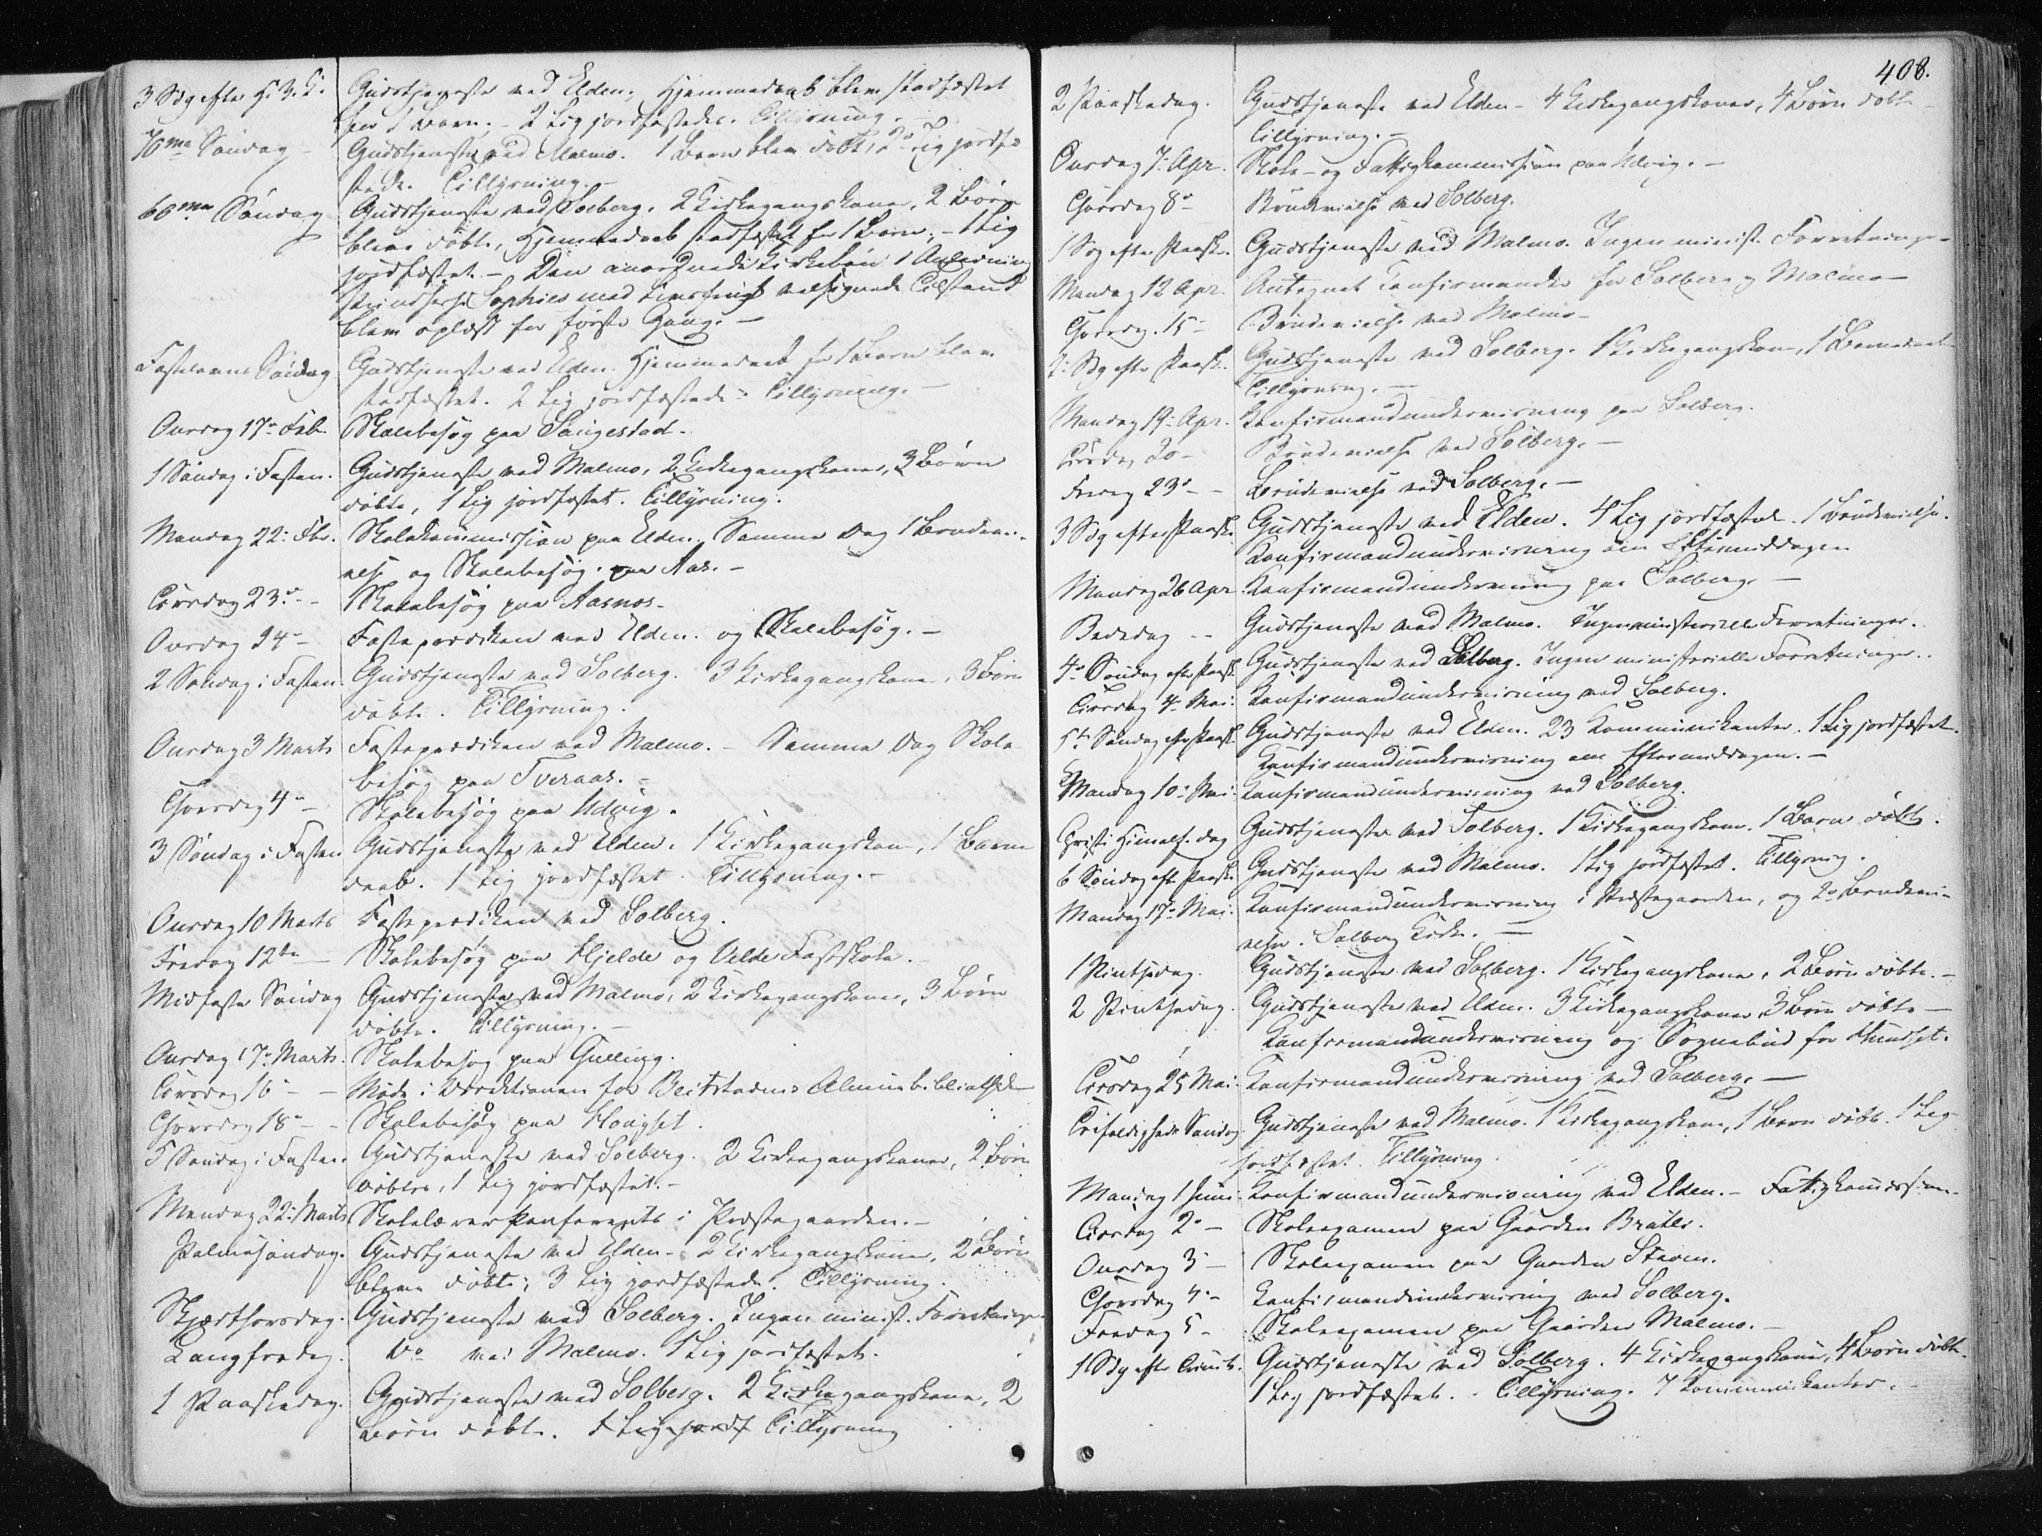 3 Søg efter H. 3. K. Gudstjeneste ved Elden. Hjemmedaab blev stadfæstet
for 1 Barn, - 2 Lig jordfæstede. Tillysning. -
70me Søndag Gudstjeneste ved Malmo. 1 Barn blev døbt, 2 Lig jordfæ
stede. Tillysning. -
60me Søndag Gudstjeneste ved Solberg. 2 Kirkegangskoner, 2 Børn
bleve døbte, Hjemmedaab stadfæstet for 1 Barn; - 1 Lig
jordfæstet. - Den anordnede Kirkebøn i Anledning
Prindsesse Sophies med Livsfrugt velsignede Tilstand
blev oplæst for første Gang. -
Fastelavns Søndag Gudstjeneste ved Elden. Hjemmedaab for 1 Barn blev
stadfæstet. 2 Lig jordfæstede. Tillysning. -
Onsdag 17 Feb. Skolebesøg paa Saugestad.
1 Søndag i Fasten. Gudstjeneste ved Malmo, 2 Kirkegangskoner, 3 Børn
døbte, 1 Lig jordfæstet. Tillysning.
Mandag 22: Fbr. Skolekommission paa Elden. Samme Dag 1 Brudevi-
else og Skolebesøg paa Aas. -
Tirsdag 23 - Skolebesøg paa Aasnes.
Onsdag 24 - Fasteprædiken ved Elden og Skolebesøg. -
2 Søndag i Fasten. Gudstjeneste ved Solberg. 3 Kirkegangskoner, 3 Børn
døbte. Tillysning.
Onsdag 3 Marts Fasteprædiken ved Malmo. - Samme Dag Skole
besøg paa Tveraas. -
Thorsdag 4 - Skolebesøg paa Udvig.
3 Søndag i Fasten Gudstjeneste ved Elden. 1 Kirkegangskone, 1 Barne
daab. 1 Lig jordfæstet. Tillysning. -
Onsdag 10 Marts Fasteprædiken ved Solberg.
Fredag 12te - Skolebesøg paa Hjelde og Velde Fastskole. -
Midfaste Søndag Gudstjeneste ved Malmo, 2 Kirkegangskoner, 3 Børn
døbte. Tillysning. -
Onsdag 17 Marts. Skolebesøg paa
Tirsdag 16 - Møde i Direktionen for Beitstadens Almuebibliothek
Thorsdag 18 - Skolebesøg paa
5 Søndag i Fasten. Gudstjeneste ved Solberg. 2 Kirkegangskoner, 2 Børn
døbte, 1 Lig jordfæstet. -
Mandag 22: Marts Skolelærerkonferents i Præstegaarden. -
Palmesøndag. Gudstjeneste ved Elden - 2 Kirkegangskoner, 2 Børn
bleve døbte; 3 Lig jordfæstede. Tillysning.
Skjærthorsdag. Gudstjeneste ved Solberg. Ingen minist. Forretninger
Langfredag. Do ved Malmo. 1 Lig jordfæstet.
1 Paaskedag. Gudstjeneste ved Solberg. 2 Kirkegangskoner, 2
Børn døbte. 1 Lig jordf Tillysning
408.
2 Paaskedag. Gudstjeneste ved Elden - 4 Kirkegangskoner, 4 Børn døbte
Tillysning. -
Onsdag 7: Apr. Skole- og Fattigkommission paa Udvig. -
Thorsdag 8 - Brudevielse ved Solberg.
1 Søg efter Paaske. Gudstjeneste ved Malmo. Ingen minist. Forretninger
Mandag 12 Apr. Antegnet Konfirmander for Solberg og Malmo -
Thorsdag 15 - Brudevielse ved Malmo -
2: Søg efter Paaske. Gudstjeneste ved Solberg. 1 Kirkegangskone, 1 Barnedaab
Tillysning. -
Mandag 19: Apr. Konfirmandundervisning paa Solberg.
Tirsdag 20 - Brudevielse ved Solberg. -
Fredag 23 - Brudevielse ved Solberg. -
3 Søg efter Paaske Gudstjeneste ved Elden. 4 Lig jordfæstet. 1 Brudevielse.
Konfirmandundervisning om Eftermiddagen
Mandag 26 Apr Konfirmandundervisning paa Solberg. -
Bededag - - Gudstjeneste ved Malmo. Ingen ministerielle Forretninger.
4 Søndag efter Paaske Gudstjeneste ved Solberg. Ingen ministerielle Forretninger.
Tirsdag 4 Mai: Konfirmandundervisning ved Solberg.
5t Søndag efter Paaske Gudstjeneste ved Elden. 23 Kommunikanter. 1 Lig jordfæstet.
Konfirmandundervisning om Eftermiddagen. -
Mandag 10 Mai: Konfirmandundervisning ved Solberg.
Christi Himmelf. Dag Gudstjeneste ved Solberg. 1 Kirkegangskone. 1 Barn døbt.
6 Søndag eft Paaske Gudstjeneste ved Malmo. 1 Lig jordfæstet. Tillysning.
Mandag 17 Mai. Konfirmandundervisning i Præstegaarden, og 2 Brudevi-
elser. Solberg Kirke. -
1 Pintsedag. Gudstjeneste ved Solberg. 1 Kirkegangskone, 2 Børn døbte. -
2 Pintsedag. Gudstjeneste ved Elden. 3 Kirkegangskoner, 3 Børn døbte -
Konfirmandundervisning og Sognebud for
Tirsdag 25 Mai. Konfirmandundervisning ved Solberg. -
Trefoldigheds Søndag Gudstjeneste ved Malmo. 1 Kirkegangskone, 1 Barn døbt. 1 Lig
jordfæstet. Tillysning
Mandag 1 Juni. Konfirmandundervisning ved Elden. - Fattigkommission.
Tirsdag 2 - Skoleexamen paa Gaarden Bratli.
Onsdag 3 - Skoleexamen paa Gaarden
Thorsdag 4 - Konfirmandundervisning ved Solberg.
Fredag 5 - Skoleexamen paa Gaarden Malmo. -
1 Søg efter Trinit. Gudstjeneste ved Solberg. 4 Kirkegangskoner, 4 Børn døbt.
1 Lig jordfæstet. - Tillysning. 7 Kommunikanter. -